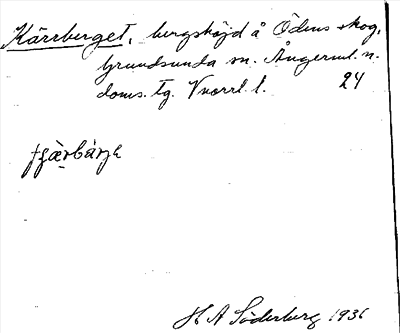 Kärrberget, bergshöjd å Ödens skog,
Grundsunda sn. Ångerml. n.
doms. tg. Vnorrl. l. 24
H A Söderberg 1936